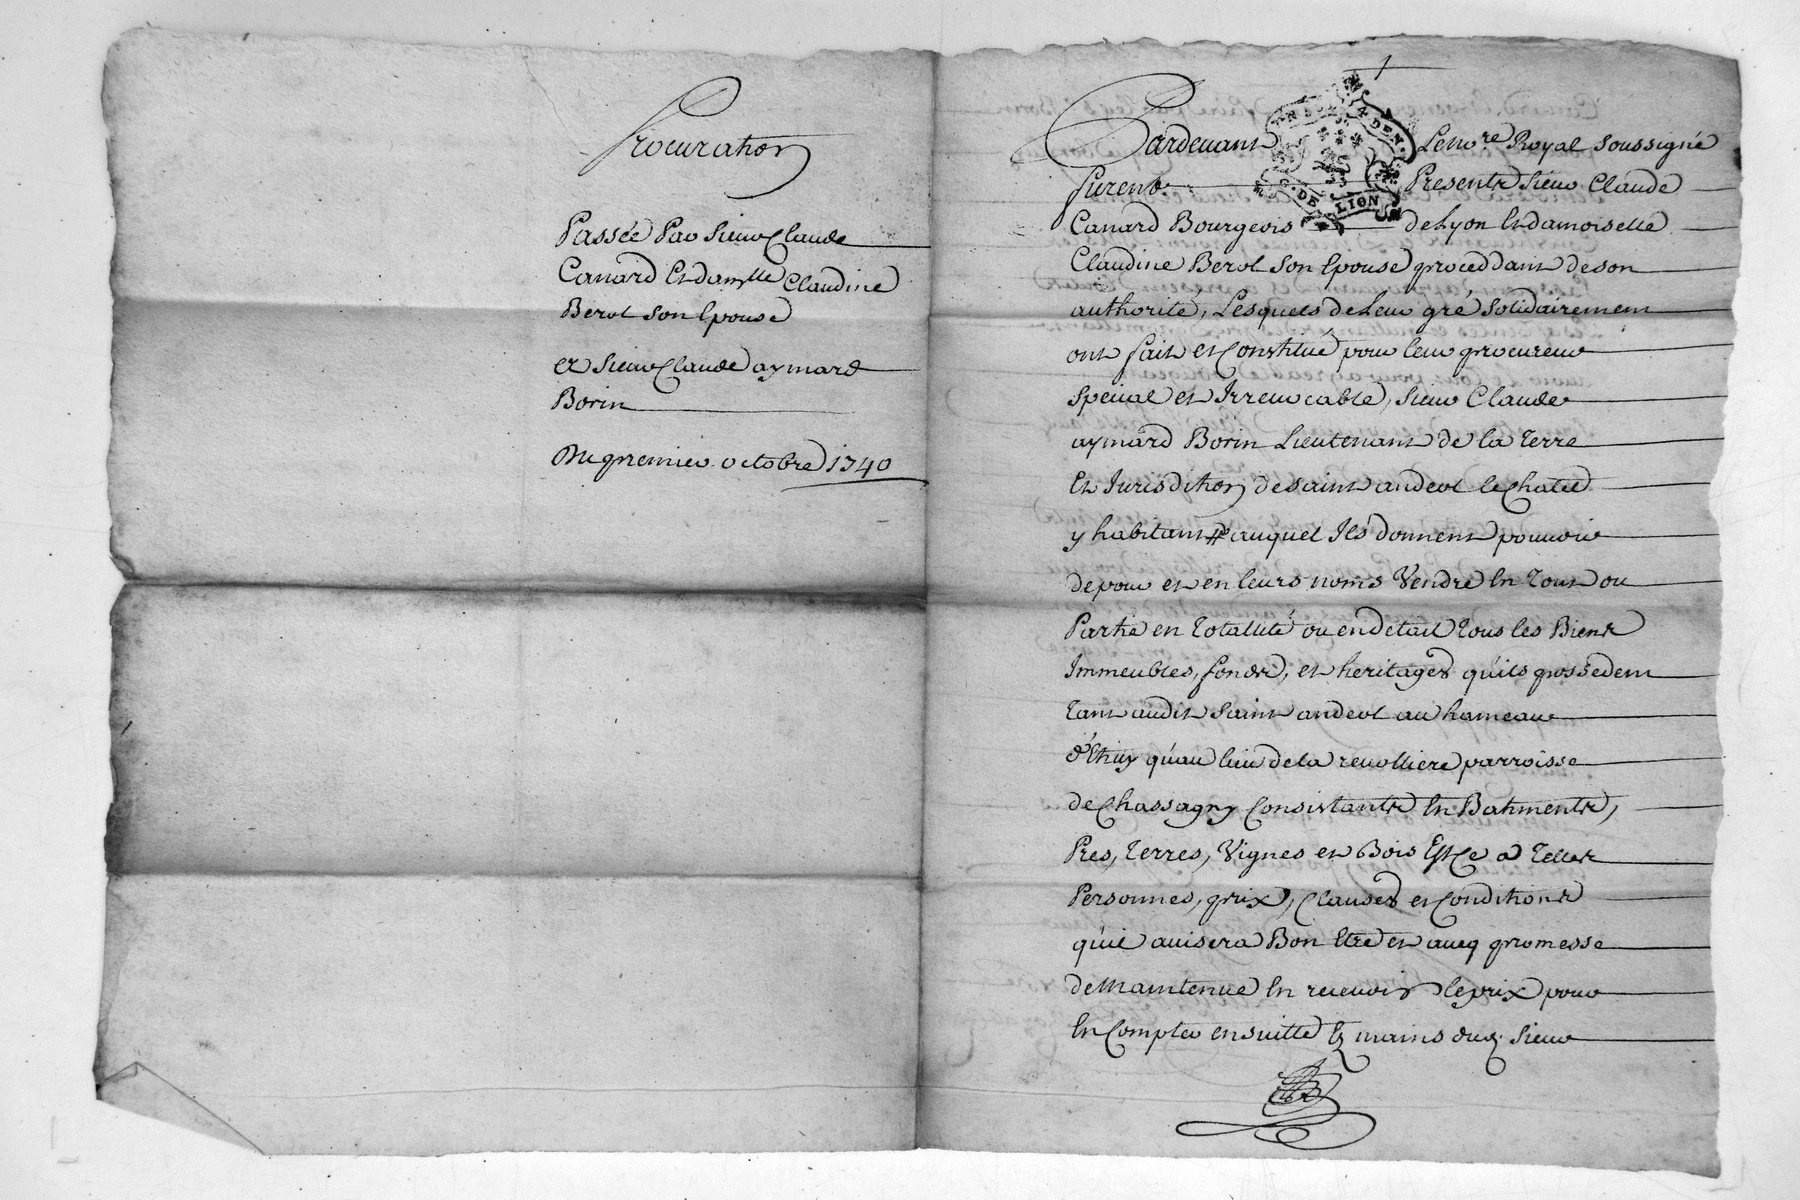 Procuration
Passée Par Sieur Claude
Canard Et damlle Claudine
Berol son Epouse
et Sieur Claude aymard
Borin
Du premier octobre 1740
1
Pardevant Le nore Royal soussigné
furent Presents Sieur Claude
Canard Bourgeois de Lyon Et damoiselle
Claudine Berol son Epouse proceddant de son
authorité, Lesquels de Leur gré solidairement
ont fait et Constitué pour leur procureur
special et Irrevocable, Sieur Claude
aymard Borin Lieutenant de la Terre
Et Jurisdition de saint andeol le Chatel
y habitant auquel Ils donnent pouvoir
de pour et en leurs noms Vendre En Tout ou
Partie en Totallité ou en detail tous les Biens
Immeubles, fonds, et heritages qu'ils possedent
tant audit saint andeol au hameau
d'Ehuy qu'au lieu de la revolliere parroisse
de Chassagny Consistants En Batiments,
Prés, Terres, Vignes et Bois Et Ce a Telles
Personnes, prix, Clauses et Conditions
qu'il avisera Bon Etre et aveq promesse
de Maintenue En recevoir le prix pour
En Compter ensuitte Es mains dud. Sieur
4 DEN.
G. DE LION